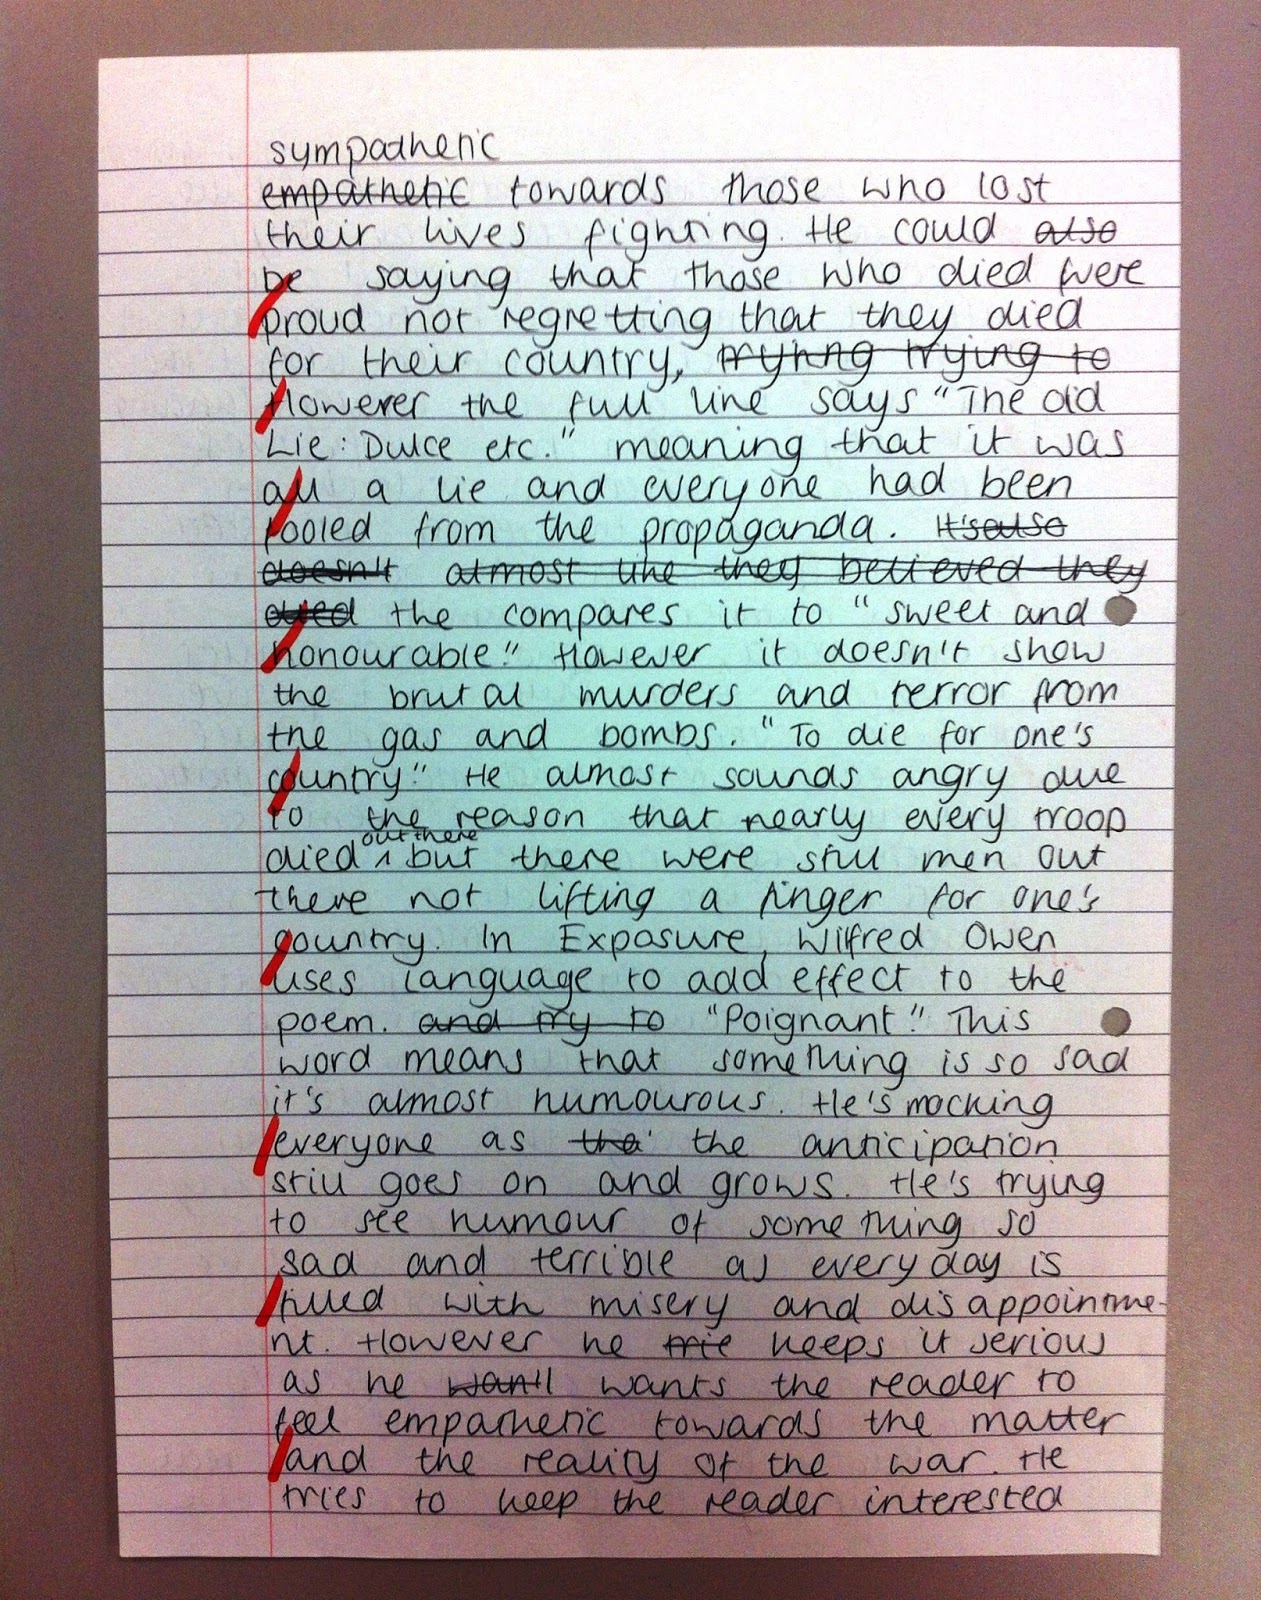 sympathetic
empathetic towards those who lost
their lives fighting. He could also
be saying that those who died were
proud not regretting that they died
for their country, tryring trying to
However the full line says "The old
Lie: Dulce etc." meaning that it was
all a lie and everyone had been
fooled from the propaganda. It's also
doesn't almost like they believed they
died the compares it to "sweet and
honourable." However it doesn't show
the brutal murders and terror from
the gas and bombs. "To die for one's
country." He almost sounds angry due
to the reason that nearly every troop
out there
died ^ but there were still men out
there not lifting a finger for one's
country. In Exposure, Wilfred Owen
uses language to add effect to the
poem. and try to "Poignant." This
word means that something is so sad
it's almost humourous. He's mocking
everyone as the the anticipation
still goes on and grows. He's trying
to see humour of something so
sad and terrible as everyday is
filled with misery and disappointme-
nt. However he keeps it serious
as he wants the reader to
feel empathetic towards the matter
and the reality of the war. He
tries to keep the reader interested